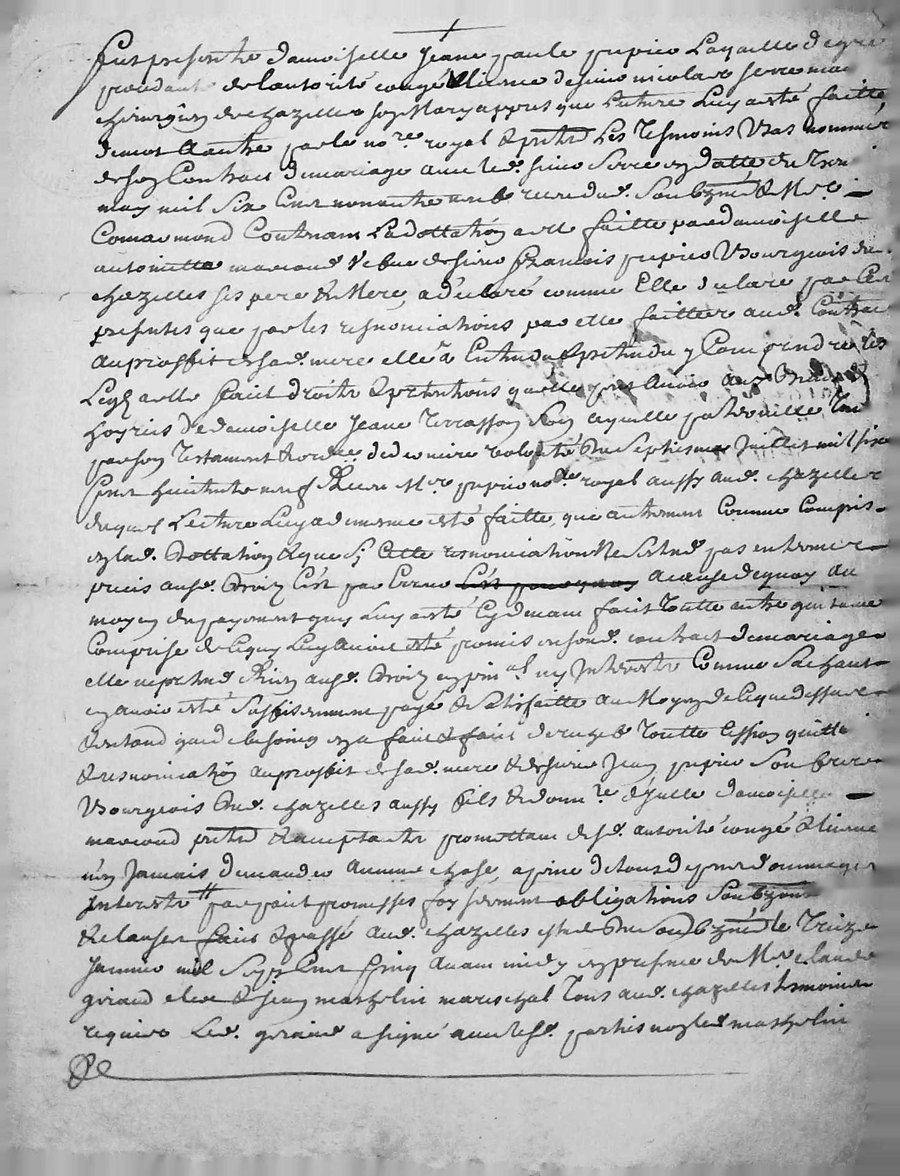 Fut presente damoiselle Jeane paule pupier Laquelle
procedant de lautorité congé & licence de sieur nicolas serre me
chirurgien de chazelles son Mary appres que Lecture Luy a esté faitte
par le nore royal & pntz Les Tesmoins bas nommes
de son Contract de mariage avec led. sieur Serre en datte du
may mil Six Cens nonante receu dud. Soubzné & Mre
Comarmond Contenant La dottation a elle faitte par damoiselle
antoinette marcoud vefve de sieur François pupier Bourgeois de
chazelles ses pere & Mere, a declaré comme Elle declare par Ces
presentes que par les renonciations par elle faittes aud. Contract
au proffit de sad. mere elle a Entendu & pretendu y Comprendre Les
Legz a elle fait droits & pretentions quelle peut avoir aux
hoyries de damoiselle Jeane Terrasson son ayeulle paternelle
par son Testament & ordre. de derniere volonté du Septiesme Juillet mil six
Cens huictante neuf Receu Mre pupier nore royal aussy aud. chazelles
duquel Lecture Luy a de mesme esté faitte, que autrement Comme Compris
en lad. Dottation & que Si Cette renonciation ne s'etend pas
ausd. Droiz C'est par Erreur a cause de quoy au
moyen du payement quy Luy a esté Cydevant fait Toutte autre
Comprise de Ce quy Luy avoit esté promis en sond. contract de mariage
elle ne pretend Rien ausd. Droiz en pnal ny Interestz Comme Sachant
en avoir esté Suffisemment payé & Satisfaitte au Moyen de Ce que dessus
& entand que de besoing en a fait & fait de rechef Toutte Cession quitte
& renonciation au proffit de sad. mere & de sieur Jean pupier Son frere
Bourgeois dud. chazelles aussy fils & donnre. d'Icelle damoiselle
marcoud pntz & acceptante promettant de sd. autorité congé & licence
n'en Jamais demander aucune chose, a peine de tous despens dommages
Interestz par foit promesses foy serment obligations Soubzons
& clauses fait & passé aud. chazelles estude du Soubzné le Treize
Janvier mil Sept Cens Cinq avant midy en presence de Mre claude
giraud clerc & Jean mathelin mareschal Tous aud. chazelles tesmoins
requis Led. giraud a signé avec lesd. parties non led. mathelin